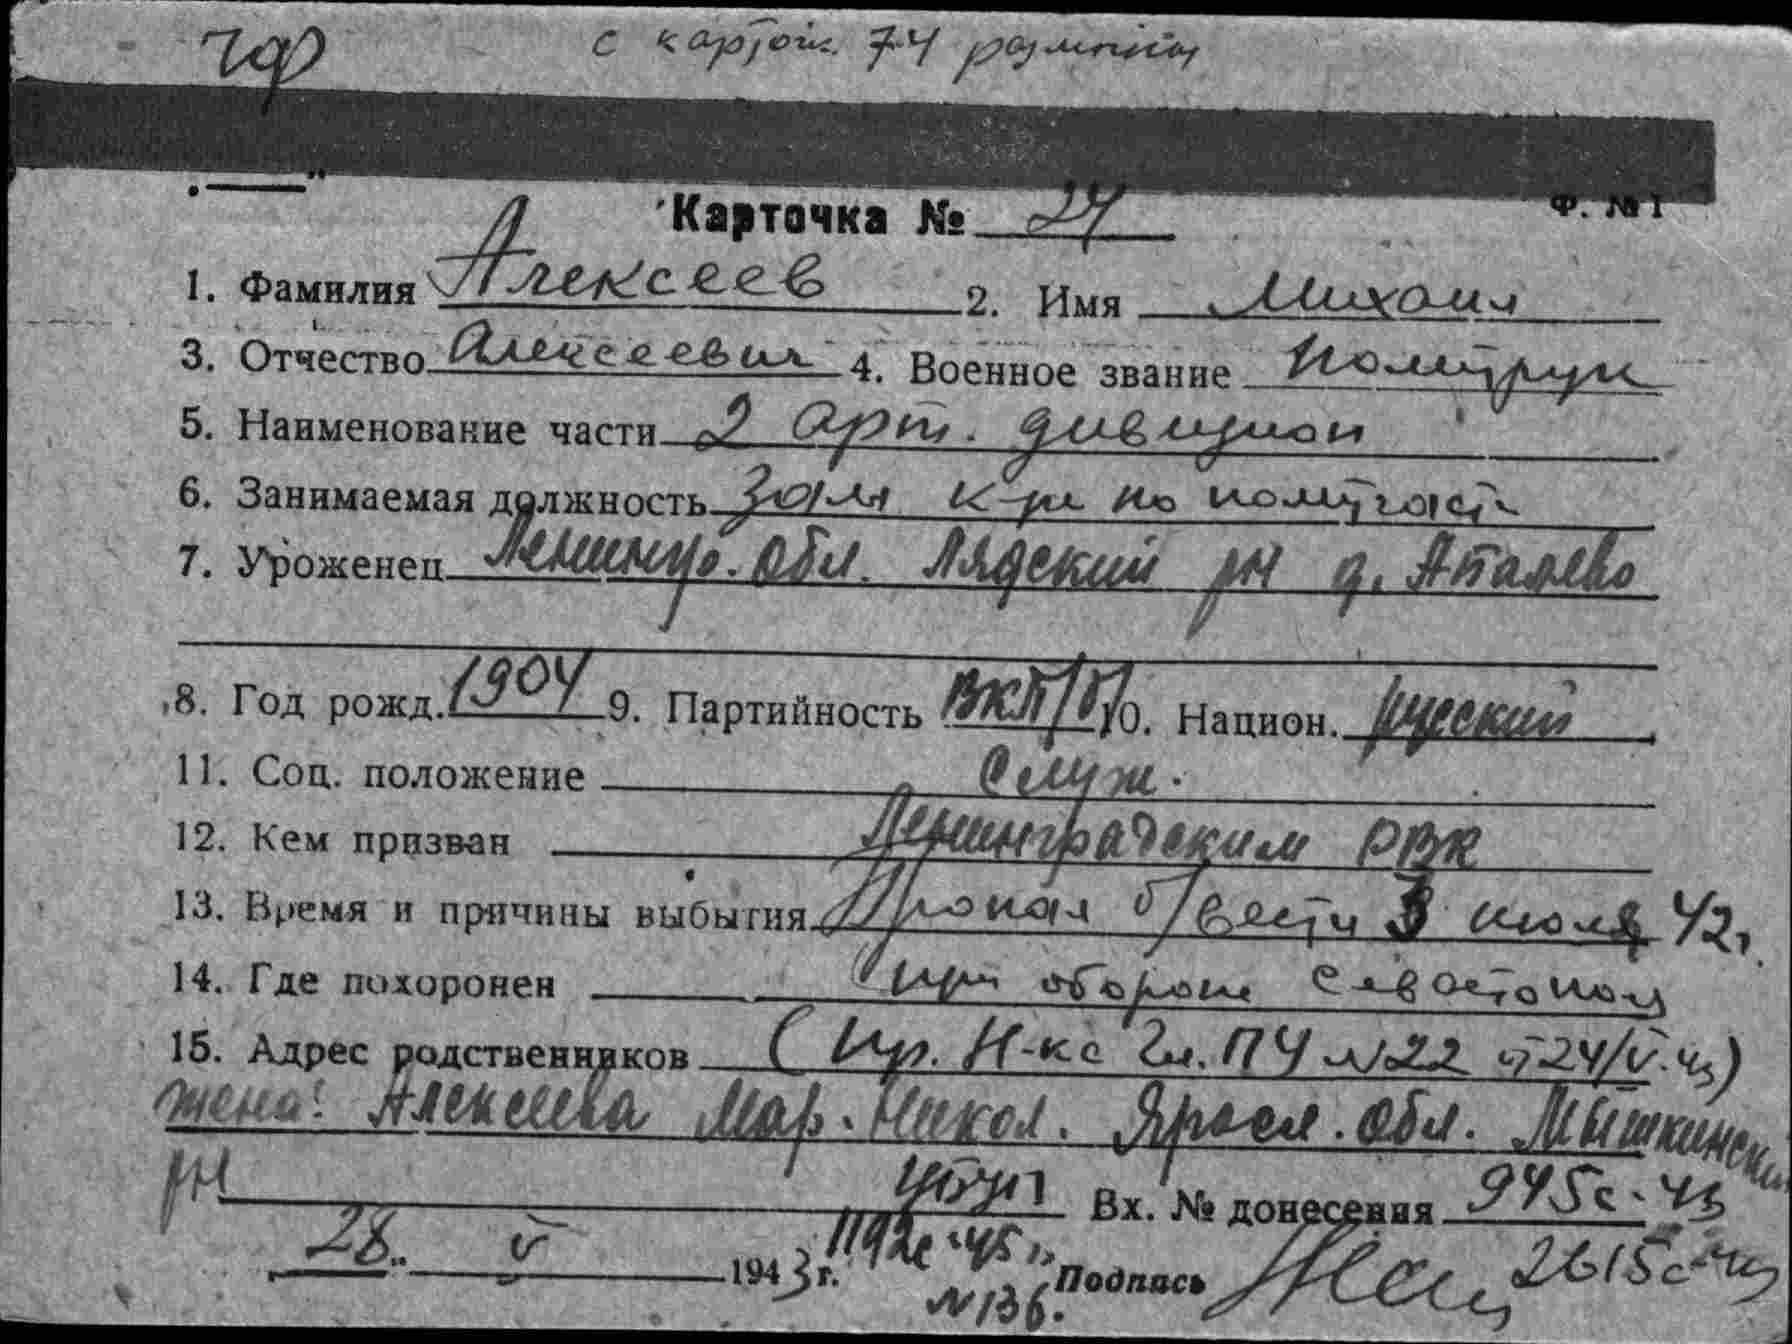 чф с картой. 74
Ф. №1
Карточка № 24
1. Фамилия Алексеев 2. Имя Михаил
3. Отчество Алексеевич 4. Военное звание Политрук
5. Наименование части 2 арт. дивизион
6. Занимаемая должность Зам к-ра по политчасти
7. Уроженец Ленингр. обл. Лядский рн д.
8. Год рожд. 1904 9. Партийность ВКП/б/ 10. Национ. русский
11. Соц. положение Служ.
12. Кем призван Ленинградским РВК
13. Время и причины выбытия Пропал б/вести 3 июля 42г.
14. Где похоронен при обороне Севастополя
15. Адрес родственников (Пр. Н-ка Гл. ПУ №22 от 24/V-43)
жена: Алексеева Мар. Никол. Яросл. обл. Мышкинский
рн Вх. № донесения 945с-43
28 V 1943 г. 1192с-45г. Подпись 2615с-43
№136.